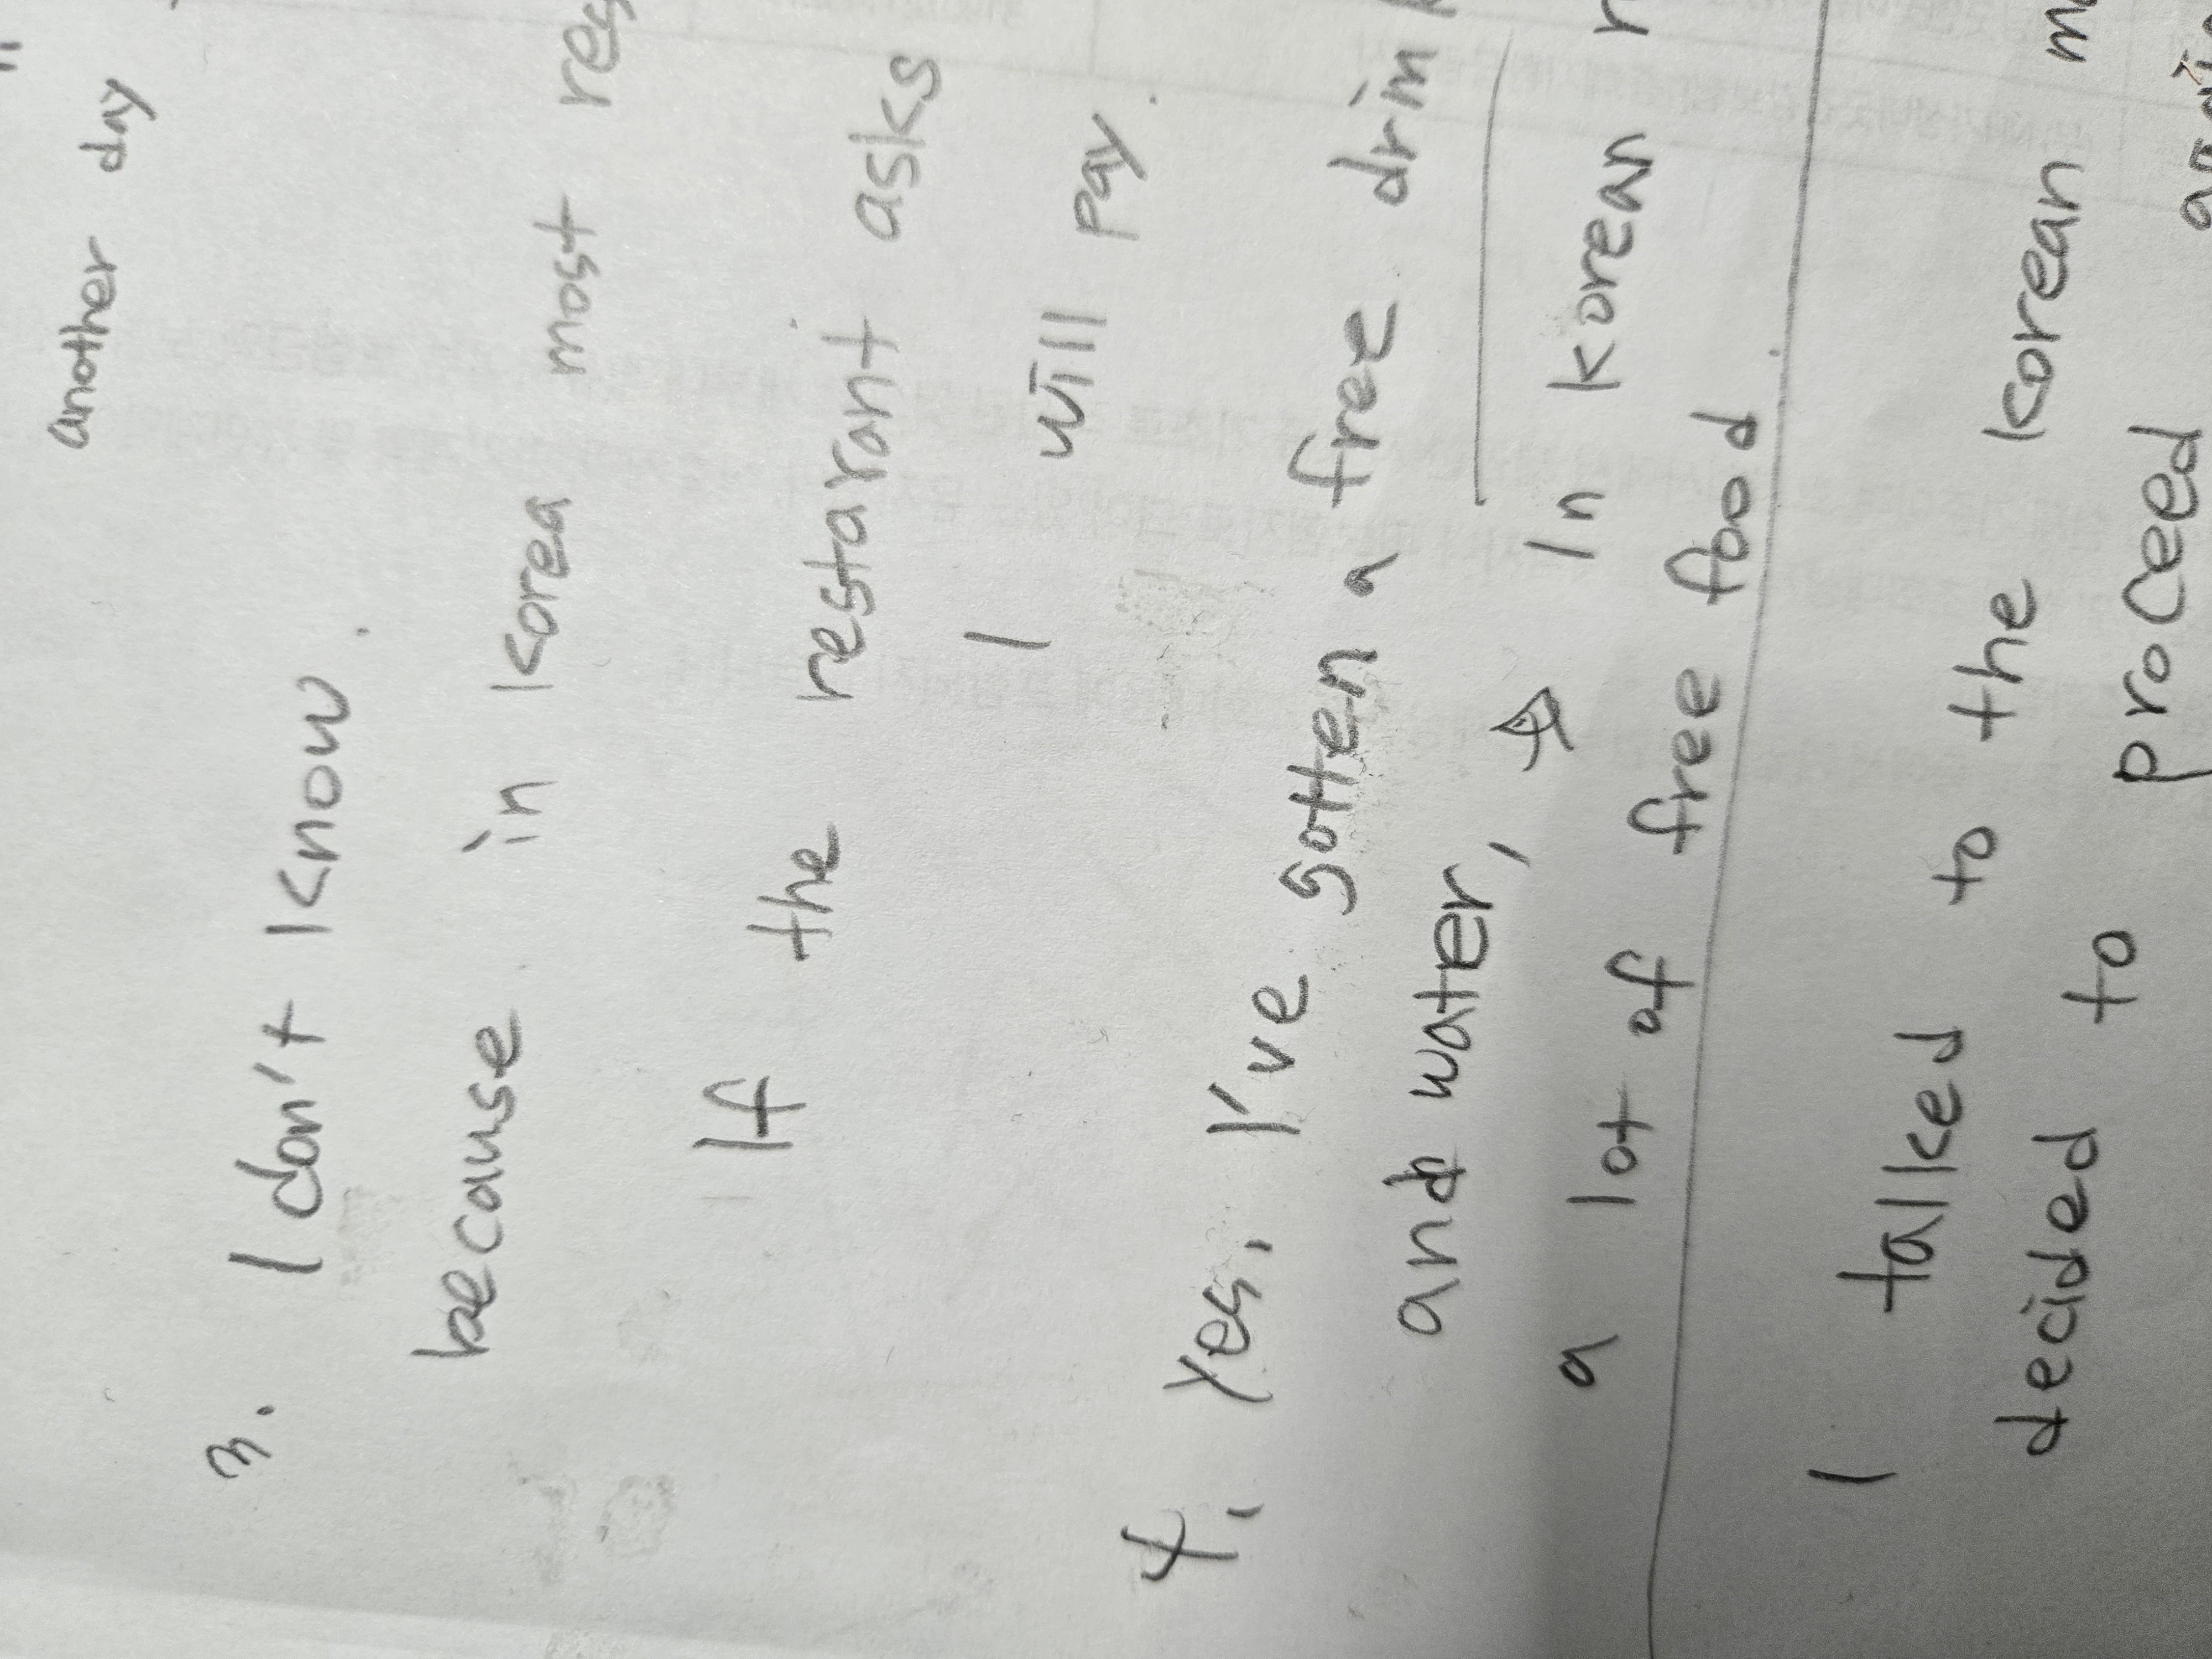 another day
3. I don't know.
because in korea most res
If the restarant asks
I will pay.
4. Yes, I've gotten a free drin
and water, → In korean r
a lot of free food
I talked to the korean m
decided to proceed